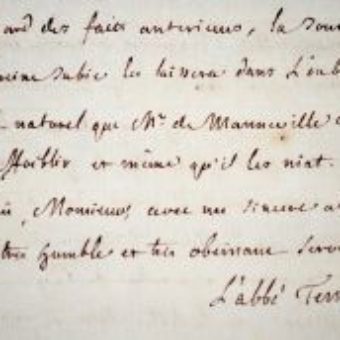 ard des faits anterieurs, la sou
eine subie les laissera dans l'oubl
naturel que Mr. de Manneville
ffoiblir et même qu'il les niat.
Monsieur, avec un sincere a
très humble et très obeissant serv
L'abbé Terr